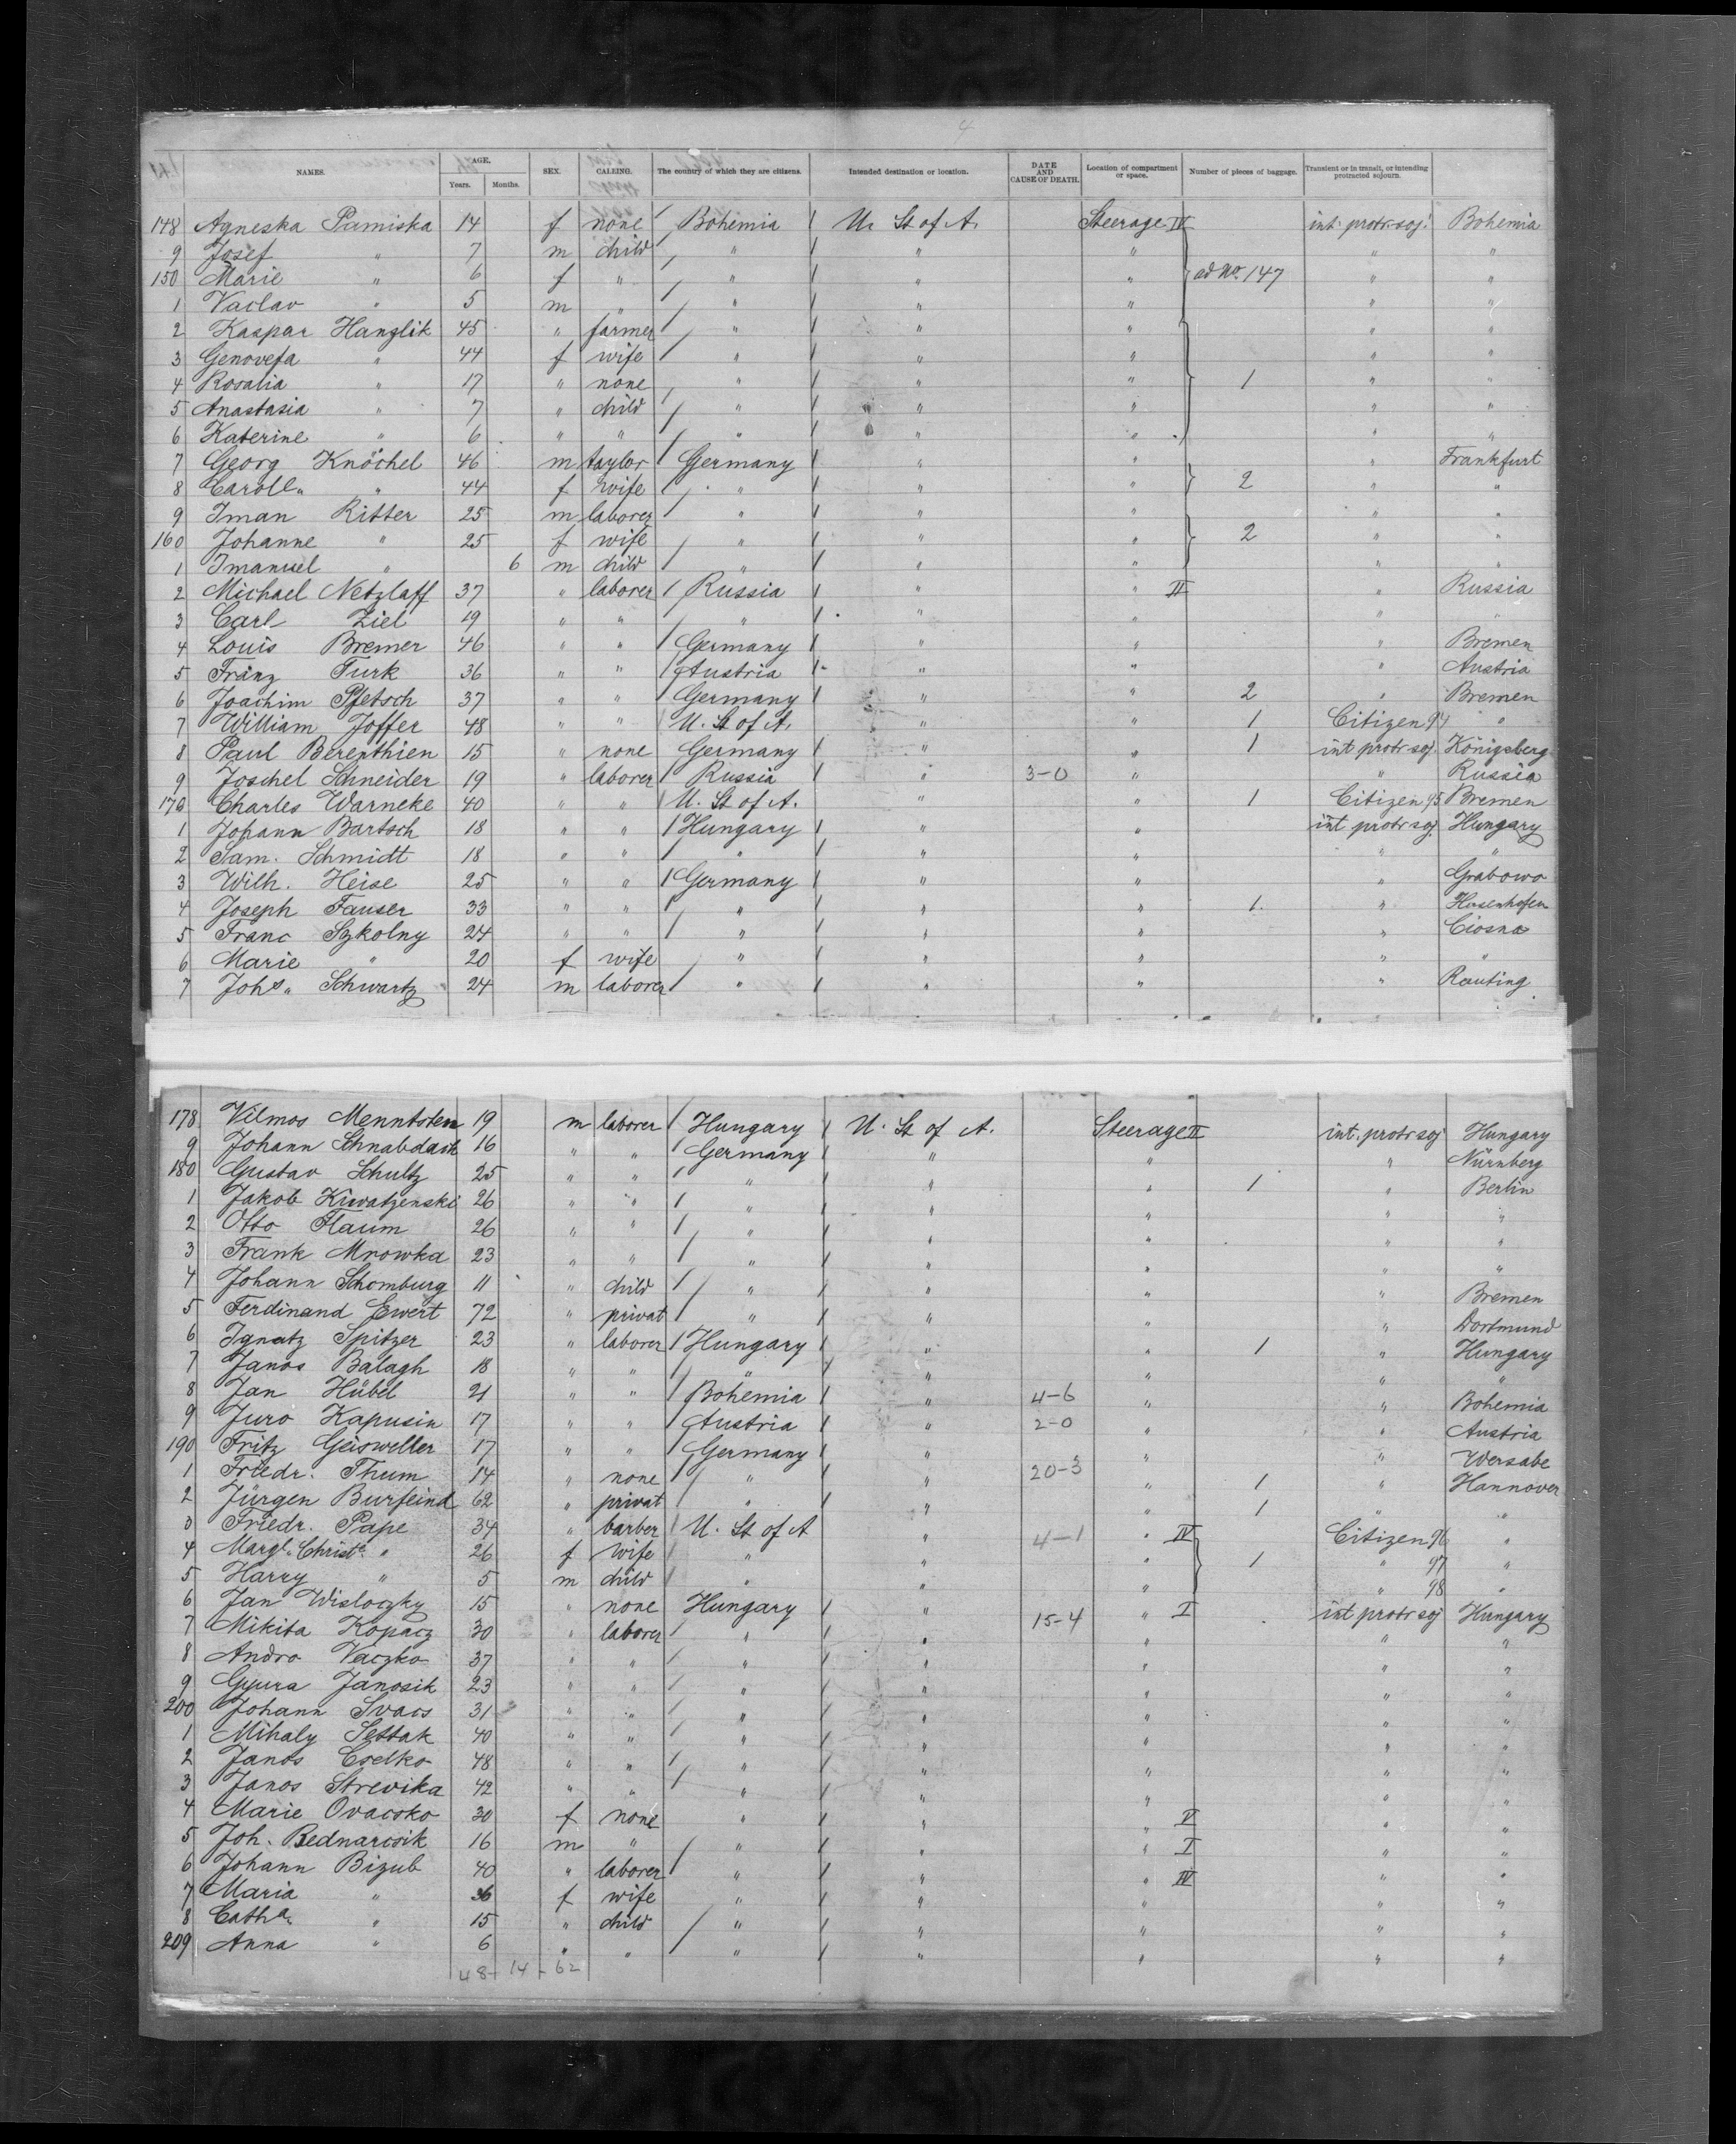 4
NAMES. AGE. Years. Months. SEX. CALLING. The country of which they are citizens. Intended destination or location. DATE AND CAUSE OF DEATH. Location of compartment or space. Number of pieces of baggage. Transient or in transit, or intending protracted sojourn.
148 Agneska Pamiska 14 f none / Bohemia / U. St of A. Steerage IV int. protr. soj. Bohemia
9 Josef " 7 m child / " / " " " "
150 Marie " 6 f " / " / " " ad No. 147 " "
1 Vaclav " 5 m " / " / " " " "
2 Kaspar Hanzlik 45 " farmer / " / " " " "
3 Genovefa " 44 f wife / " / " " " "
4 Rosalia " 17 " none / " / " " 1 " "
5 Anastasia " 7 " child / " / " " " "
6 Katerine " 6 " " / " / " " " "
7 Georg Knöchel 46 m taylor / Germany / " " " Frankfurt
8 Caroll. " 44 f wife / " / " " 2 " "
9 Iman Ritter 25 m laborer / " / " " " "
160 Johanne " 25 f wife / " / " " 2 " "
1 Imanuel " 6 m child / " / " " " "
2 Michael Netzlaff 37 " laborer / Russia / " " II " Russia
3 Carl Ziel 19 " " / " / " " " "
4 Louis Bremer 46 " " / Germany / " " " Bremen
5 Franz Turk 36 " " / Austria / " " " Austria
6 Joachim Pfetsch 37 " " / Germany / " " 2 " Bremen
7 William Joffer 48 " " / U. St of A. " " 1 Citizen 94 "
8 Paul Berenthien 15 " none Germany / " " 1 int protr soj. Königsberg
9 Joschel Schneider 19 " laborer / Russia / " 3-0 " " Russia
170 Charles Warneke 40 " " / U. St of A. " " 1 Citizen 95 Bremen
1 Johann Bartsch 18 " " / Hungary / " " int protr soj. Hungary
2 Sam. Schmidt 18 " " / " / " " " "
3 Wilh. Heise 25 " " / Germany / " " " Grabowo
4 Joseph Fauser 33 " " / " / " " 1. " Hosenhofen
5 Franc Szkolny 24 " " / " / " " " Ciosna
6 Marie " 20 f wife / " / " " " "
7 Johs. Schwartz 24 m laborer / " / " " " Rauting
178 Vilmos Menntsten 19 m laborer / Hungary / U. St of A. Steerage II int. protr soj Hungary
9 Johann Schnabdack 16 " " / Germany / " " " Nürnberg
180 Gustav Schultz 25 " " / " / " " 1 " Berlin
1 Jakob Kiwatzenski 26 " " / " / " " " "
2 Otto Flaum 26 " " / " / " " " "
3 Frank Mrowka 23 " " / " / " " " "
4 Johann Schomburg 11 " child / " / " " " Bremen
5 Ferdinand Ewert 72 " privat / " / " " " Dortmund
6 Ignatz Spitzer 23 " laborer / Hungary / " " 1 " Hungary
7 Janos Balagh 18 " " / " / " " " "
8 Jan Hübel 21 " " / Bohemia / " 4-6 " " Bohemia
9 Juro Kapusin 17 " " / Austria / " 2-0 " " Austria
190 Fritz Geisweller 17 " " / Germany / " " " Wersabe
1 Friedr. Thum 14 " none / " / " 20-3 " 1 " Hannover
2 Jürgen Burfeind 62 " privat / " / " " 1 " "
3 Friedr. Pape 34 " barber / U. St of A " 4-1 " IV Citizen 96 "
4 Margl. Christe. " 26 f wife / " " " 1 " 97 "
5 Harry " 5 m child / " " " " 98 "
6 Jan Wisloczky 15 " none Hungary / " 15-4 " I int protr soj Hungary
7 Mikita Kopacz 30 " laborer / " / " " " "
8 Andro Vaczko 37 " " / " / " " " "
9 Gyura Janosik 23 " " / " / " " " "
200 Johann Svacs 31 " " / " / " " " "
1 Mihaly Settak 40 " " / " / " " " "
2 Janos Cselko 48 " " / " / " " " "
3 Janos Strevika 42 " " / " / " " " "
4 Marie Ovacsko 30 f none " / " " V " "
5 Joh. Bednarcsik 16 m " / " / " " I " "
6 Johann Bizub 40 " laborer / " / " " IV " "
7 Maria " 36 f wife " / " " " "
8 Catha. " 15 " child / " / " " " "
209 Anna " 6 " " / " / " " " "
48 - 14 - 62